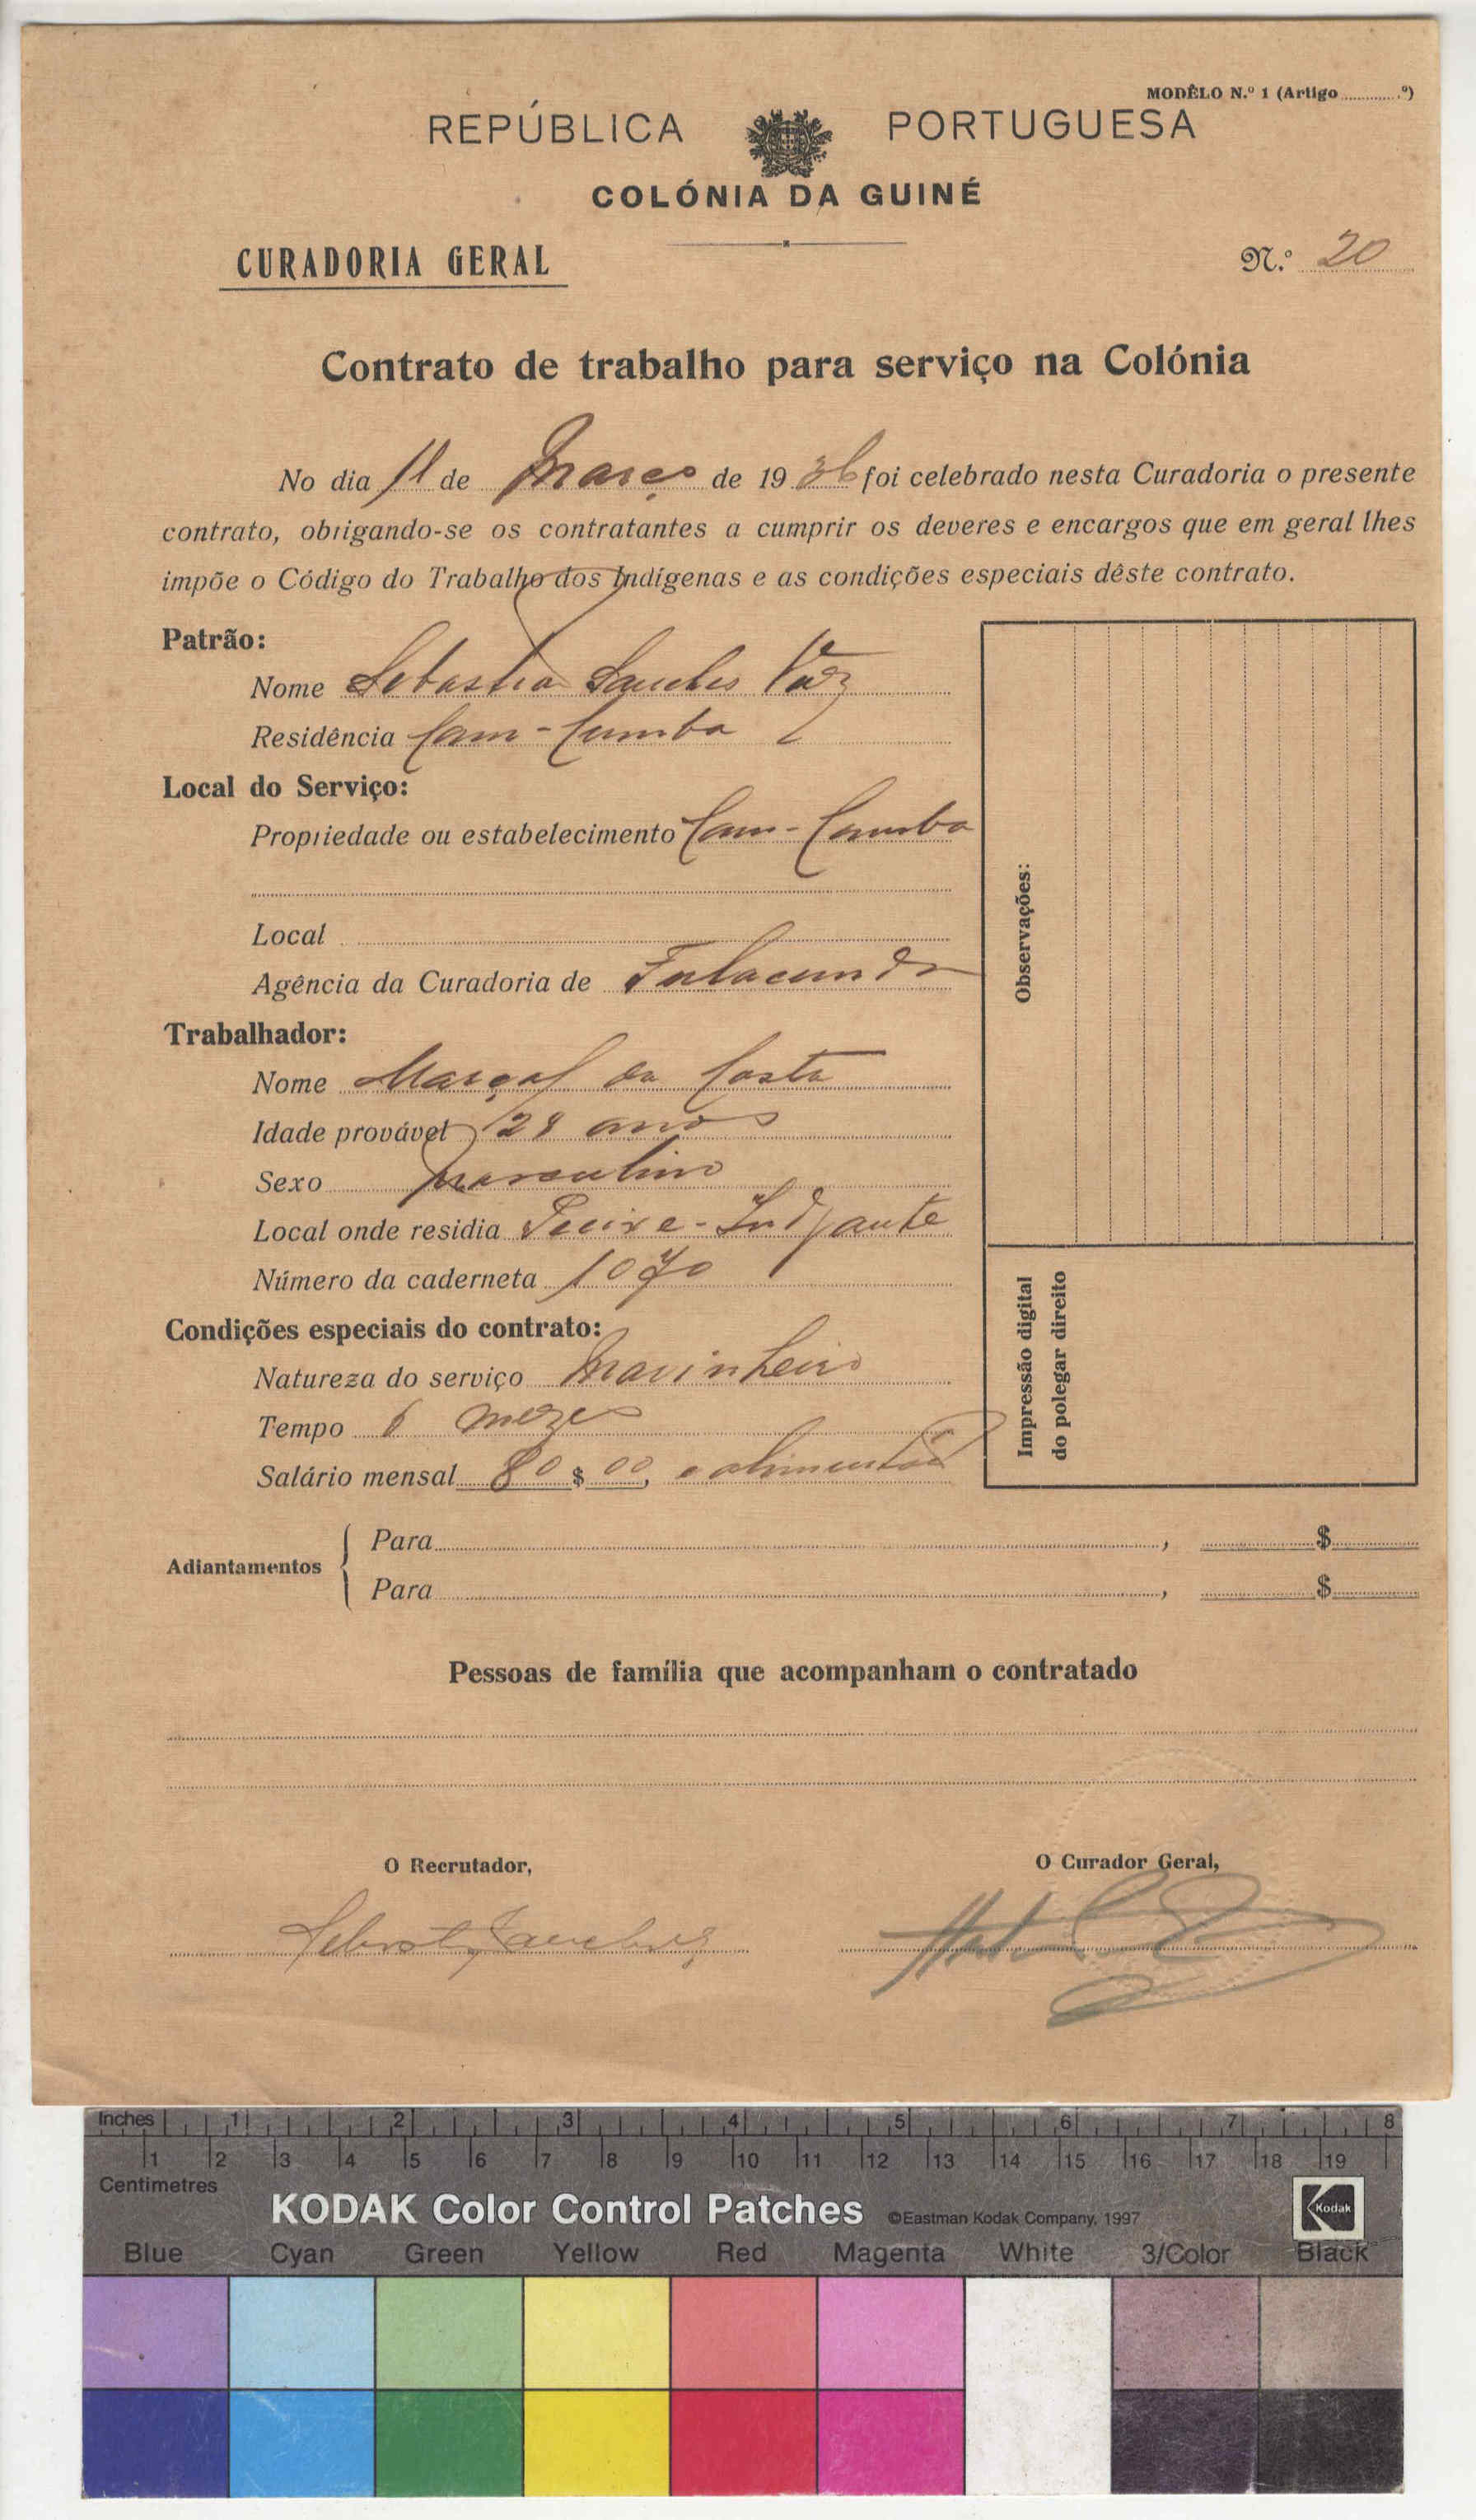 MODÊLO N.º 1 (Artigo ............º)
REPÚBLICA PORTUGUESA
COLÓNIA DA GUINÉ
CURADORIA GERAL
N.º 20
Contrato de trabalho para serviço na Colónia
No dia 11 de Março de 19 36 foi celebrado nesta Curadoria o presente
contrato, obrigando-se os contratantes a cumprir os deveres e encargos que em geral lhes
impõe o Código do Trabalho dos Indígenas e as condições especiais dêste contrato.
Patrão:
Nome Sebastião Sanches Vaz
Residência Cam-Cumba
Local do Serviço:
Propriedade ou estabelecimento Cam-Cumba
Local
Agência da Curadoria de Fulacunda
Trabalhador:
Nome Marçal da Costa
Idade provável 28 anos
Sexo masculino
Local onde residia
Número da caderneta 1070
Condições especiais do contrato:
Natureza do serviço Marinheiro
Tempo 6 mezes
Salário mensal 80 $ 00, e alimentação
Observações:
Impressão digital
do polegar direito
Adiantamentos
Para , $
Para , $
Pessoas de família que acompanham o contratado
O Recrutador,
O Curador Geral,
Inches 1 2 3 4 5 6 7 8
1 2 3 4 5 6 7 8 9 10 11 12 13 14 15 16 17 18 19
Centimetres
KODAK Color Control Patches ©Eastman Kodak Company, 1997 Kodak
Blue Cyan Green Yellow Red Magenta White 3/Color Black